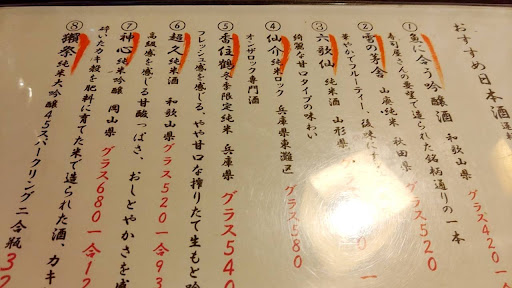 おすすめ日本酒
①魚に合う吟醸酒 和歌山県 グラス420 一
寿司屋さんの要望で造られた銘柄通りの一本
②雪の茅舎 山廃純米 秋田県 グラス520
華やかでフルーティー、後味に
③六歌仙 純米酒 山形県
綺麗な甘口タイプの味わい
④仙介 純米ロック 兵庫県東灘区 グラス580
オンザロック専門酒
⑤香住鶴 冬季限定純米 兵庫県 グラス540
フレッシュ感を感じる、やや甘口な搾りたて生もと吟
⑥超久 純米酒 和歌山県 グラス520 一合93
高級感を感じる甘酸っぱさ、おしとやかさを感
⑦神心 純米吟醸 岡山県 グラス680 一合12
砕いたカキ殻を肥料に育てた米で造られた酒、カキ
⑧獺祭 純米大吟醸45スパークリング二合瓶 32